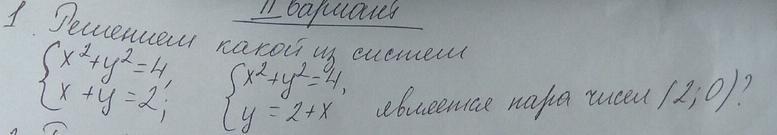 II вариант
1. Решением какой из систем
{x²+y²=4, {x²+y²=4,
{x+y=2; {y=2+x является пара чисел (2;0)?